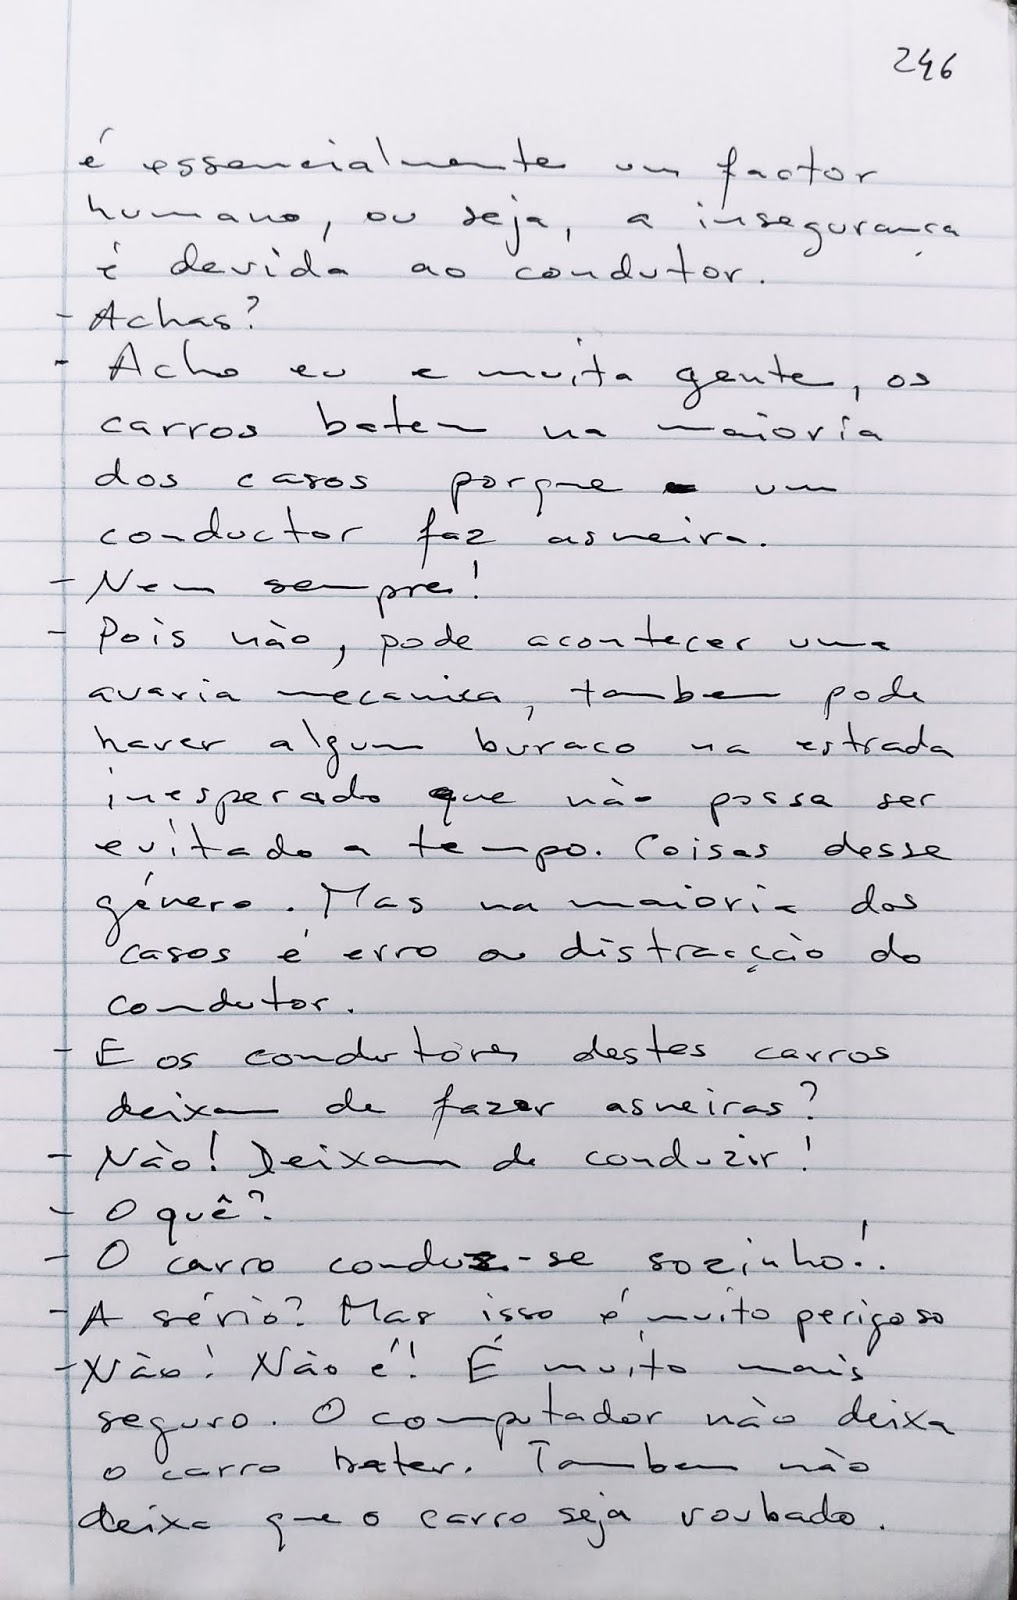 246
é essencialmente um factor
humano, ou seja, a insegurança
é devida ao condutor.
- Achas?
- Acho eu e muita gente, os
carros batem na maioria
dos casos porque um
conductor faz asneira.
- Nem sempre!
- Pois não, pode acontecer uma
avaria mecanica, tambem pode
haver algum buraco na estrada
inesperado que não possa ser
evitado a tempo. Coisas desse
género. Mas na maioria dos
casos é erro ou distracção do
condutor.
- E os condutores destes carros
deixam de fazer asneiras?
- Não! Deixam de conduzir!
- O quê?
- O carro conduz-se sozinho!.
- A sério? Mas isso é muito perigoso
- Não! Não é! É muito mais
seguro. O computador não deixa
o carro bater. Tambem não
deixa que o carro seja roubado.